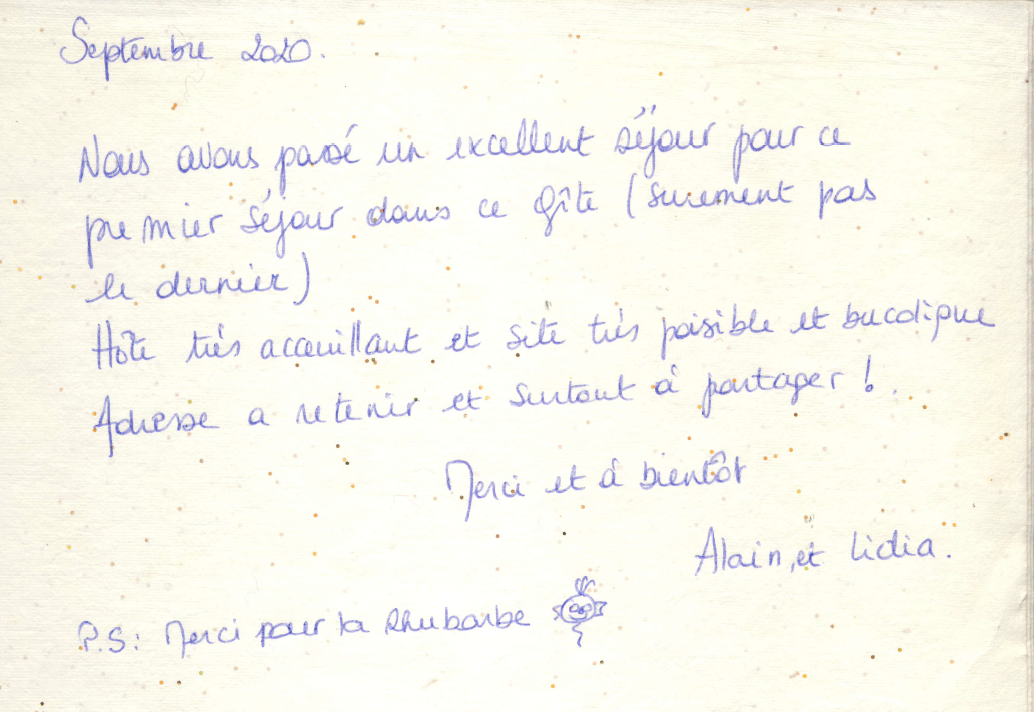 Septembre 2020.
Nous avons passé un excellent séjour pour ce
premier séjour dans ce gîte (surement pas
le dernier)
Hôte très acceuillant et site très paisible et bucolique
Adresse a retenir et surtout à partager !.
Merci et à bientôt
Alain, et Lidia.
P.S: Merci pour la Rhubarbe